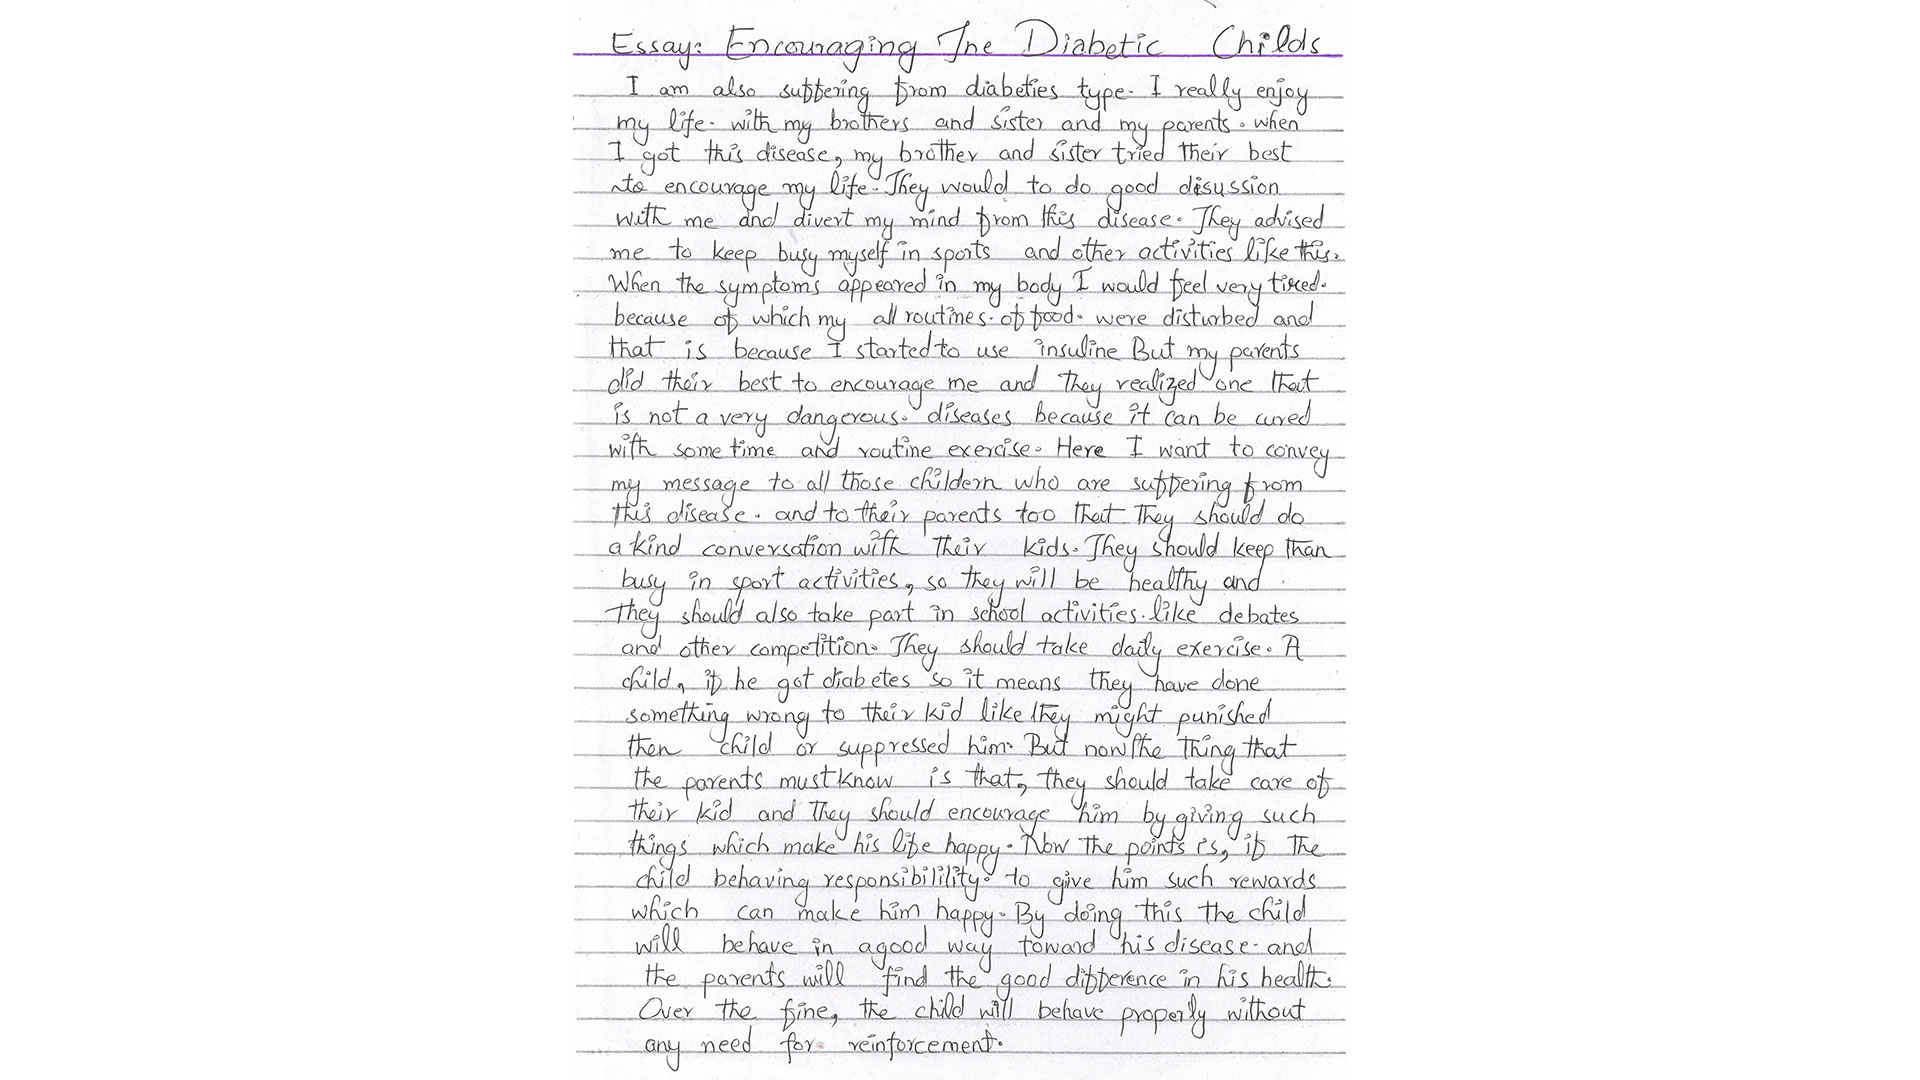 Essay: Encouraging The Diabetic Childs
I am also suffering from diabeties type. I really enjoy
my life. with my brothers and sister and my parents. when
I got this disease, my brother and sister tried their best
to encourage my life. They would to do good disussion
with me and divert my mind from this disease. They advised
me to keep busy myself in sports and other activities like this.
When the symptoms appeared in my body I would feel very tired.
because of which my all routines. of food. were disturbed and
that is because I started to use insuline But my parents
did their best to encourage me and they realized one that
is not a very dangerous. diseases because it can be cured
with some time and routine exercise. Here I want to convey
my message to all those childern who are suffering from
this disease. and to their parents too that they should do
a kind conversation with their kids. They should keep than
busy in sport activities, so they will be healthy and
they should also take part in school activities. like debates
and other competition. They should take daily exercise. A
child, if he got diabetes so it means they have done
something wrong to their kid like they might punished
then child or suppressed him. But now the thing that
the parents must know is that, they should take care of
their kid and they should encourage him by giving such
things which make his life happy. Now the points is, if the
child behaving responsibilility. to give him such rewards
which can make him happy. By doing this the child
will behave in a good way toward his disease. and
the parents will find the good difference in his health.
Over the fine, the child will behave properly without
any need for reinforcement.